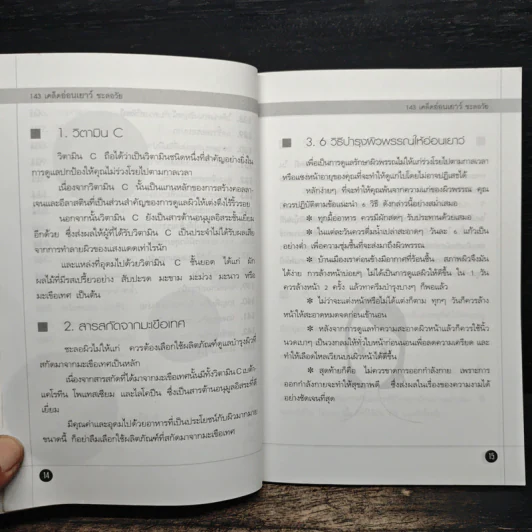 143 เคล็ดอ่อนเยาว์ ชะลอวัย
1. วิตามิน C
วิตามิน C ถือได้ว่าเป็นวิตามินชนิดหนึ่งที่สำคัญอย่างยิ่งใน
การดูแลปกป้องให้คุณไม่ร่วงโรยไปตามกาลเวลา
เนื่องจากวิตามิน C นั้นเป็นแกนหลักของการสร้างคอลลา
เจนและอีลาสตินที่เป็นส่วนสำคัญของการดูแลผิวให้เต่งตึงไร้ริ้วรอย
นอกจากนั้นวิตามิน C ยังเป็นสารต้านอนุมูลอิสระชั้นเยี่ยม
อีกด้วย ซึ่งส่งผลให้ผู้ที่ได้รับวิตามิน C เป็นประจำไม่ได้รับผลเสีย
จากการทำลายผิวของแสงแดดเท่าไรนัก
และแหล่งที่อุดมไปด้วยวิตามิน C ชั้นยอด ได้แก่ ผัก
ผลไม้ที่มีรสเปรี้ยวอย่าง สับปะรด มะขาม มะม่วง มะนาว หรือ
มะเขือเทศ เป็นต้น
2. สารสกัดจากมะเขือเทศ
ชะลอผิวไม่ให้แก่ ควรต้องเลือกใช้ผลิตภัณฑ์ดูแลบำรุงผิวที่
สกัดมาจากมะเขือเทศเป็นหลัก
เนื่องจากสารสกัดที่ได้มาจากมะเขือเทศนั้นมีทั้งวิตามิน C เบต้า
แคโรทีน โพแทสเซียม และไลโคปีน ซึ่งเป็นสารต้านอนุมูลอิสระที่ดี
เยี่ยม
มีคุณค่าและอุดมไปด้วยอาหารที่เป็นประโยชน์กับผิวมากมาย
ขนาดนี้ ก็อย่าลืมเลือกใช้ผลิตภัณฑ์ที่สกัดมาจากมะเขือเทศ
14
143 เคล็ดอ่อนเยาว์ ชะลอวัย
3. 6 วิธีบำรุงผิวพรรณให้อ่อนเยาว์
เพื่อเป็นการดูแลรักษาผิวพรรณไม่ให้แก่ร่วงโรยไปตามกาลเวลา
หรือแซงหน้าอายุของคุณที่จะทำให้ดูแก่ไปโดยไม่อาจปฏิเสธได้
หลักง่ายๆ ที่จะทำให้คุณพ้นจากความแก่ของผิวพรรณ คุณ
ควรปฏิบัติตามข้อแนะนำ 6 วิธี ดังกล่าวนี้อย่างสม่ำเสมอ
✱ ทุกมื้ออาหาร ควรมีผักสดๆ รับประทานด้วยเสมอ
✱ ในแต่ละวันควรดื่มน้ำเปล่าสะอาดๆ วันละ 6 แก้วเป็น
อย่างต่ำ เพื่อความชุ่มชื้นที่จะส่งมาถึงผิวพรรณ
✱ บ้านเมืองเราค่อนข้างมีอากาศที่ร้อนชื้น สภาพผิวจึงมัน
ได้ง่าย การล้างหน้าบ่อยๆ ไม่ได้เป็นการดูแลผิวให้ดีขึ้น ใน 1 วัน
ควรล้างหน้า 2 ครั้ง แล้วทาครีมบำรุงบางๆ ก็พอแล้ว
✱ ไม่ว่าจะแต่งหน้าหรือไม่ได้แต่งก็ตาม ทุกๆ วันก็ควรล้าง
หน้าให้สะอาดหมดจดก่อนเข้านอน
✱ หลังจากการดูแลทำความสะอาดผิวหน้าแล้วก็ควรใช้นิ้ว
นวดเบาๆ เป็นวงกลมให้ทั่วใบหน้าก่อนนอนเพื่อลดความเครียด และ
ทำให้เลือดไหลเวียนบนผิวหน้าได้ดีขึ้น
✱ สุดท้ายก็คือ ไม่ควรขาดการออกกำลังกาย เพราะการ
ออกกำลังกายจะทำให้สุขภาพดี ซึ่งส่งผลในเรื่องของความงามได้
อย่างชัดเจนที่สุด
15